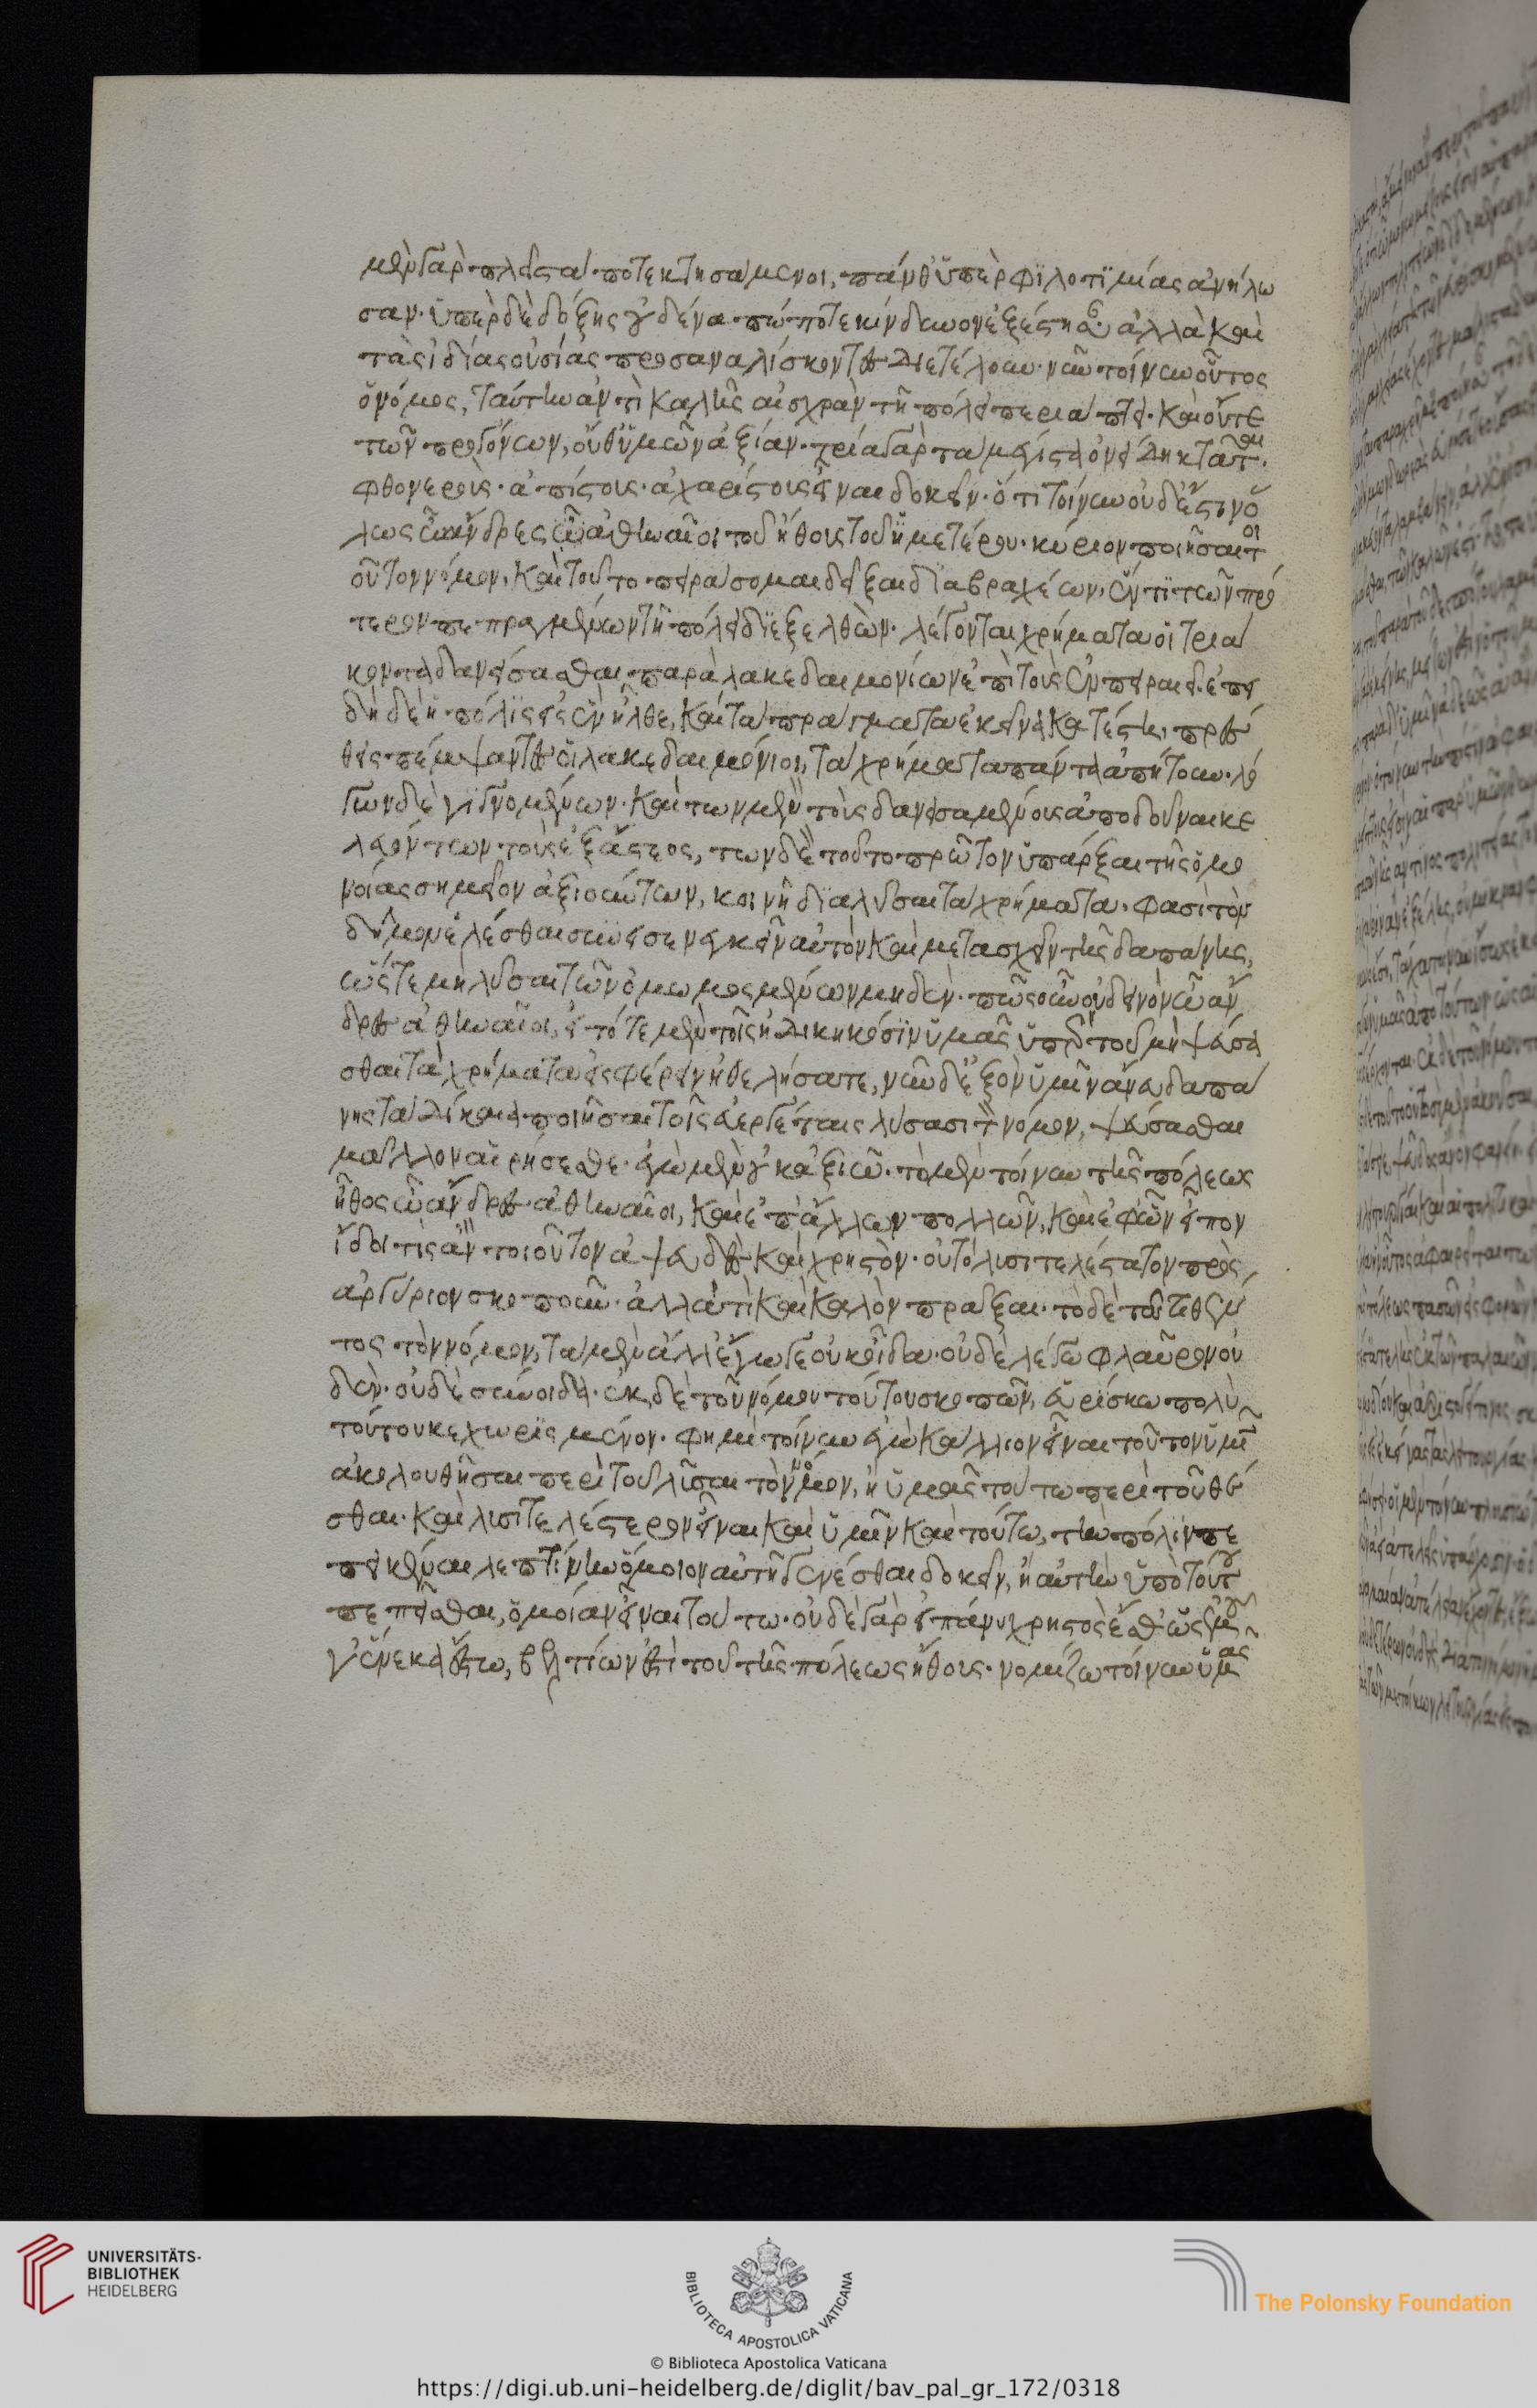 μὲν γὰρ πλεῖστά ποτε κτησάμενοι, πάνθ' ὑπὲρ φιλοτιμίας ἀνήλω
σαν· ὑπὲρ δὲ δόξης οὐδένα πώποτε κίνδυνον ἐξέστησαν· ἀλλὰ καὶ
τὰς ἰδίας οὐσίας προσαναλίσκοντες διετέλουν· νῦν τοίνυν οὗτος
ὁ νόμος, ταύτην ἀντὶ καλῆς αἰσχρὰν τῇ πόλει περιάπτει· καὶ οὔτε
τῶν προγόνων, οὔθ' ὑμῶν ἀξίαν· τρία γὰρ τὰ μέγιστα ὀνείδη κτᾶται·
φθονεροῖς· ἀπίστοις· ἀχαρίστοις εἶναι δοκεῖν· ὅτι τοίνυν οὐδ' ἔστιν ὅ
λως ὦ ἄνδρες ὦ ἀθηναῖοι τοῦ ἤθους τοῦ ἡμετέρου κύριον ποιῆσαι τοι
οῦτον νόμον, καὶ τοῦτο πειράσομαι δεῖξαι διὰ βραχέων, ἕν τι τῶν πρό
τερον πεπραγμένων τῇ πόλει διεξελθών· λέγονται χρήματα οἱ τριά
κοντα δανείσασθαι παρὰ λακεδαιμονίων ἐπὶ τοὺς ἐν πειραιεῖ· ἐπει
δὴ δὲ ἡ πόλις εἰς ἓν ἦλθε, καὶ τὰ πράγματα ἐκεῖνα κατέστη, πρέσ
βεις πέμψαντες οἱ λακεδαιμόνιοι, τὰ χρήματα πάντα ἀπῄτουν· λό
γων δὲ γιγνομένων· καὶ τῶν μὲν τοὺς δανεισαμένους ἀποδοῦναι κε
λευόντων τοὺς ἐξ ἄστεος, τῶν δὲ τοῦτο πρῶτον ὑπάρξαι τῆς ὁμο
νοίας σημεῖον ἀξιούντων, κοινῇ διαλῦσαι τὰ χρήματα· φασὶ τὸν
δῆμον ἑλέσθαι συνεισενεγκεῖν αὐτὸν καὶ μετασχεῖν τῆς δαπάνης,
ὥστε μὴ λῦσαι τῶν ὁμωμοσμένων μηδέν· πῶς οὖν οὐ δεινὸν ὦ ἄν
δρες ἀθηναῖοι, εἰ τότε μὲν τοῖς ἠδικηκόσιν ὑμᾶς ὑπὲρ τοῦ μὴ ψεύσα
σθαι τὰ χρήματα εἰσφέρειν ἠθελήσατε, νῦν δὲ ἐξὸν ὑμῖν ἄνευ δαπά
νης τὰ δίκαια ποιῆσαι τοῖς εὐεργέταις λύσασι τὸν νόμον, ψεύσασθαι
μᾶλλον αἱρήσεσθε· ἐγὼ μὲν οὐκ ἀξιῶ· τὸ μὲν τοίνυν τῆς πόλεως
ἦθος ὦ ἄνδρες ἀθηναῖοι, καὶ ἐπ' ἄλλων πολλῶν, καὶ ἐφ' ὧν εἶπον
ἴδοι τις ἂν τοιοῦτον ἀψευδὲς καὶ χρηστὸν· οὐ τὸ λυσιτελέστατον πρὸς
ἀργύριον σκοποῦν· ἀλλά τι καὶ καλὸν πρᾶξαι· τὸ δὲ τοῦ θέν
τος τὸν νόμον, τὰ μὲν ἄλλ' ἔγωγε οὐκ οἶδα· οὐδὲ λέγω φλαῦρον οὐ
δὲν· οὐδὲ σύνοιδα· ἐκ δὲ τοῦ νόμου τούτου σκοπῶν, εὑρίσκω πολὺ
τούτου κεχωρισμένον· φημὶ τοίνυν ἐγὼ κάλλιον εἶναι τοῦτον ὑμῖν
ἀκολουθῆσαι περὶ τοῦ λῦσαι τὸν νόμον, ἢ ὑμᾶς τούτῳ περὶ τοῦ θέ
σθαι· καὶ λυσιτελέστερον εἶναι καὶ ὑμῖν καὶ τούτῳ, τὴν πόλιν πε
πεικέναι λεπτίνην ὅμοιον αὐτῇ γενέσθαι δοκεῖν, ἢ αὐτὴν ὑπὸ τούτου
πεπεῖσθαι, ὁμοίαν εἶναι τούτῳ· οὐδὲ γὰρ εἰ πάνυ χρηστὸς ἔσθ' ὡς ἐμοῦ
γ' ἕνεκα ἔστω, βελτίων ἐστὶ τοῦ τῆς πόλεως ἤθους· νομίζω τοίνυν ὑμᾶς
UNIVERSITÄTS-
BIBLIOTHEK
HEIDELBERG
BIBLIOTECA APOSTOLICA VATICANA
The Polonsky Foundation
© Biblioteca Apostolica Vaticana
https://digi.ub.uni-heidelberg.de/diglit/bav_pal_gr_172/0318